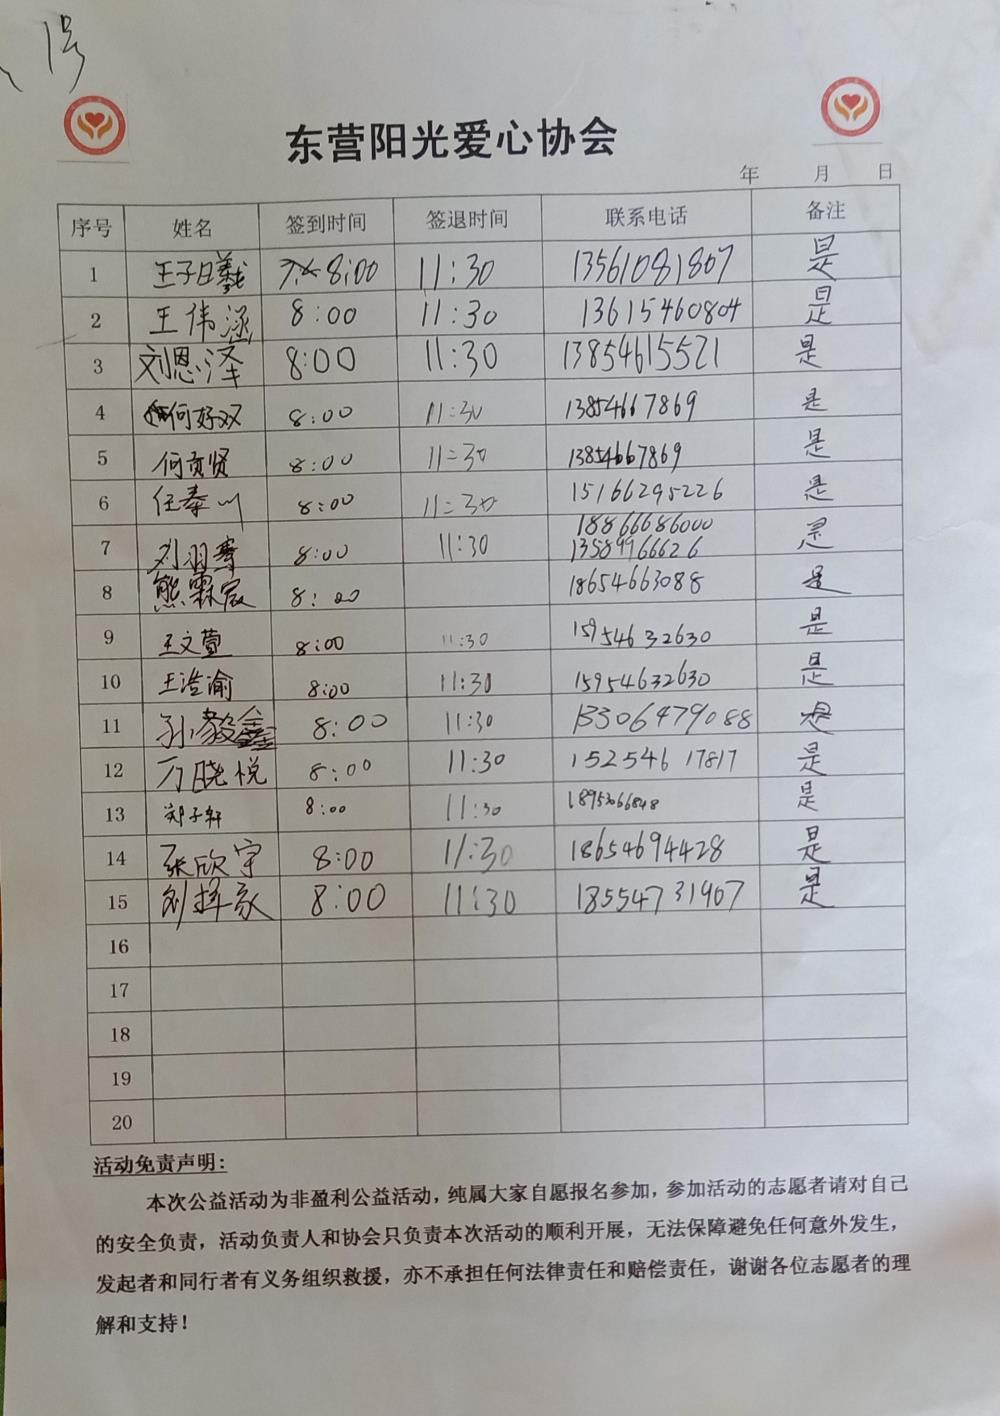 1号
东营阳光爱心协会
年 月 日
序号 姓名 签到时间 签退时间 联系电话 备注
1 王子日羲 8:00 11:30 13561081807 是
2 王伟涵 8:00 11:30 13615460804 是
3 刘恩泽 8:00 11:30 13854615521 是
4 何好双 8:00 11:30 13854667869 是
5 何贡贤 8:00 11:30 13854667869 是
6 任秦川 8:00 11:30 15166295226 是
18866686000
7 刘羽骞 8:00 11:30 13589966626 是
8 熊霖宸 8:00 18654663088 是
9 王文萱 8:00 11:30 15954632630 是
10 王浩渝 8:00 11:30 15954632630 是
11 孙毅鑫 8:00 11:30 13306479088 是
12 万晓悦 8:00 11:30 152546 17817 是
13 郑子轩 8:00 11:30 是
14 张欣宇 8:00 11:30 18654694428 是
15 刘择家 8:00 11:30 18554731907 是
16
17
18
19
20
活动免责声明:
本次公益活动为非盈利公益活动，纯属大家自愿报名参加，参加活动的志愿者请对自己
的安全负责，活动负责人和协会只负责本次活动的顺利开展，无法保障避免任何意外发生，
发起者和同行者有义务组织救援，亦不承担任何法律责任和赔偿责任，谢谢各位志愿者的理
解和支持！